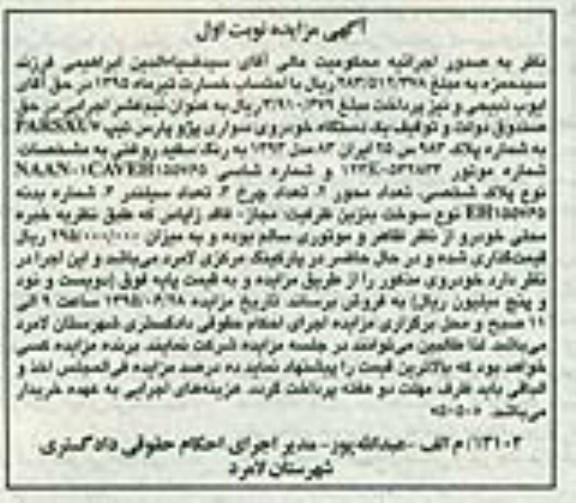 آگهی مزایده نوبت اول
نظر به صدور اجرائیه محکومیت مالی آقای سیدضیاءالدین ابراهیمی فرزند
سیدحمزه به مبلغ ۲۸۳/۵۱۲/۳۷۸ ریال با احتساب خسارت تیرماه ۱۳۹۵ در حق آقای
ایوب ذبیحی و نیز پرداخت مبلغ ریال به عنوان نیم‌عشر اجرایی در حق
صندوق دولت و توقیف یک دستگاه خودروی سواری پژو پارس تیپ
به شماره پلاک ۹۸۳ س ۲۵ ایران ۸۳ مدل ۱۳۹۳ به رنگ سفید روغنی به مشخصات:
شماره موتور و شماره شاسی
نوع پلاک شخصی، تعداد محور ۲، تعداد چرخ ۴، تعداد سیلندر ۴، شماره بدنه
نوع سوخت بنزین ظرفیت: مجاز- فاقد زاپاس که طبق نظریه خبره
محلی خودرو از نظر ظاهر و موتوری سالم بوده و به میزان ۲۹۵/۰۰۰/۰۰۰ ریال
قیمت‌گذاری شده و در حال حاضر در پارکینگ مرکزی لامرد می‌باشد و این اجرا در
نظر دارد خودروی مذکور را از طریق مزایده و به قیمت پایه فوق (دویست و نود
و پنج میلیون ریال) به فروش برساند. تاریخ مزایده ۱۳۹۵/۰۶/۲۸ ساعت ۹ الی
۱۱ صبح و محل برگزاری مزایده اجرای احکام حقوقی دادگستری شهرستان لامرد
می‌باشد. لذا طالبین می‌توانند در جلسه مزایده شرکت نمایند. برنده مزایده کسی
خواهد بود که بالاترین قیمت را پیشنهاد نماید ده درصد مزایده فی‌المجلس اخذ و
الباقی باید ظرف مهلت دو هفته پرداخت گردد. هزینه‌های اجرایی به عهده خریدار
می‌باشد. «۵۰۵۰»
۱۳۱۰۲/ م الف -عبدالله‌پور- مدیر اجرای احکام حقوقی دادگستری
شهرستان لامرد